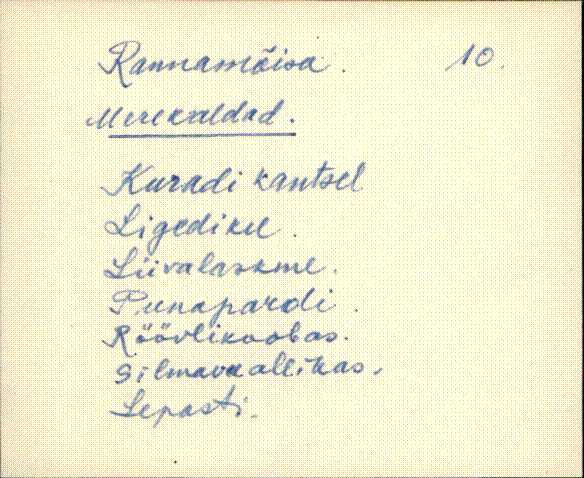 Rannamõisa. 10.
Merekaldad.
Kuradi kantsel
Ligediku.
Liivalaskme.
Punapardi.
Röövlikoobas.
Silmavaallikas.
Lepasti.